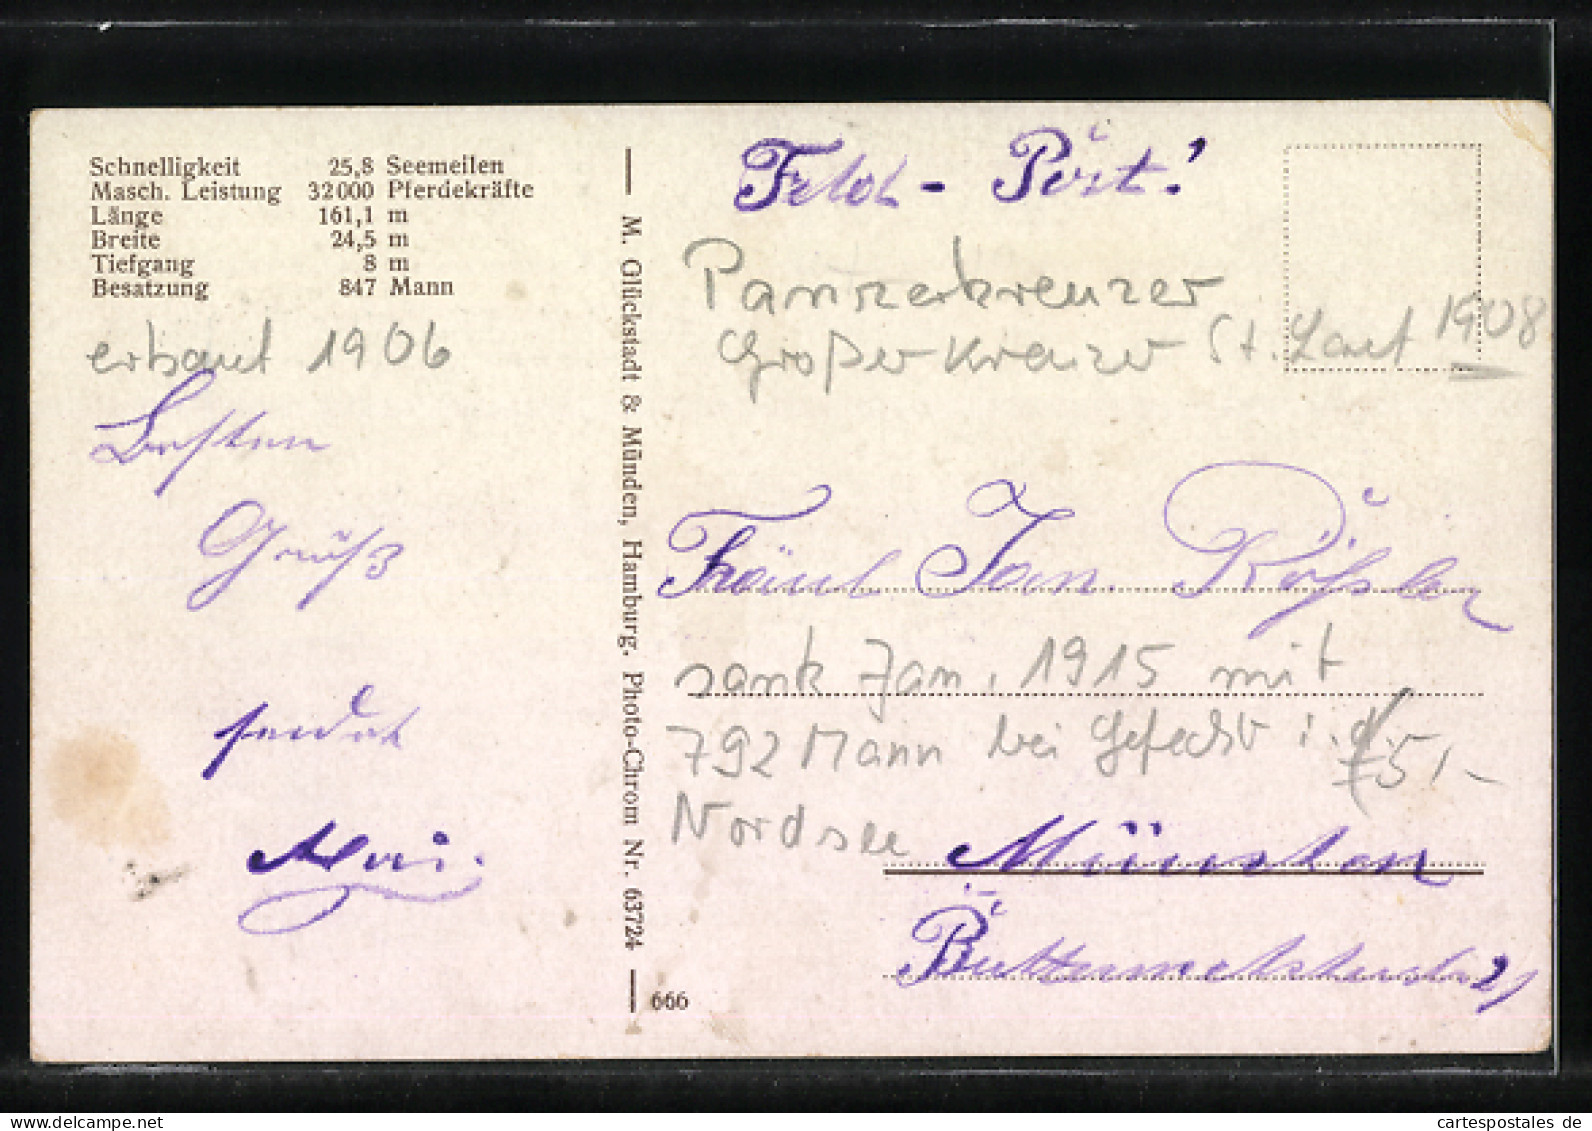 Schnelligkeit 25,8 Seemeilen
Masch. Leistung 32000 Pferdekräfte
Länge 161,1 m
Breite 24,5 m
Tiefgang 8 m
Besatzung 847 Mann
erbaut 1906
Besten
Gruß
sendet
M. Glückstadt & Münden, Hamburg. Photo-Chrom Nr. 63724
666
Feld-Post!
Panzerkreuzer
Großer Kreuzer St. Lauf 1908
Fräul Jan. Rößler
sank Jan. 1915 mit
792 Mann bei Gefecht i. d.
Nordsee
5,-
Münster
21
cartespostales.de